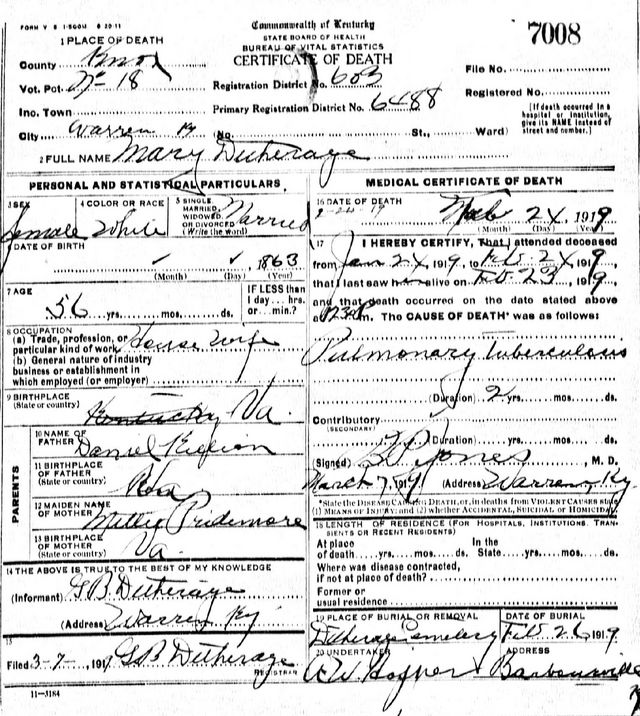 FORM V S 1-500M 8 20-11
Commonwealth of Kentucky
STATE BOARD OF HEALTH
BUREAU OF VITAL STATISTICS
CERTIFICATE OF DEATH
7008
1 PLACE OF DEATH
County Knox
Vot. Pct. No 18
Inc. Town
City Warren Ky
Registration District No. 603
Primary Registration District No. 6488
File No.
Registered No.
(If death occurred in a hospital or institution, give its NAME instead of street and number.)
(No. St., Ward)
2 FULL NAME Mary Detherage
PERSONAL AND STATISTICAL PARTICULARS
3 SEX Female
4 COLOR OR RACE White
5 SINGLE, MARRIED, WIDOWED OR DIVORCED (Write the word) Married
DATE OF BIRTH
(Month) (Day) , 1863 (Year)
7 AGE
56 yrs. mos. ds.
IF LESS than 1 day... hrs. or... min.?
8 OCCUPATION
(a) Trade, profession, or particular kind of work House wife
(b) General nature of industry business or establishment in which employed (or employer)
9 BIRTHPLACE (State or country) Kentucky Va.
PARENTS
10 NAME OF FATHER Daniel
11 BIRTHPLACE OF FATHER (State or country)
12 MAIDEN NAME OF MOTHER Pridemore
13 BIRTHPLACE OF MOTHER (State or country) Va.
14 THE ABOVE IS TRUE TO THE BEST OF MY KNOWLEDGE
(Informant) G.B. Detherage
(Address) Warren Ky
15
Filed 3-7-, 1919 G.B. Detherage REGISTRAR
11-3184
MEDICAL CERTIFICATE OF DEATH
16 DATE OF DEATH
2-24-19
Feb 24, 1919
(Month) (Day) (Year)
17 I HEREBY CERTIFY, That I attended deceased
from Jan 24, 1919, to Feb 24, 1919
that I last saw h alive on Feb 23, 1919,
and that death occurred on the date stated above
at m. The CAUSE OF DEATH* was as follows:
Pulmonary tuberculosis
(Duration) 2 yrs. mos. ds.
Contributory (SECONDARY)
(Duration) yrs. mos. ds.
(Signed) Jones, M. D.
March 7, 1919 (Address) Warren, Ky.
*State the DISEASE CAUSING DEATH, or, in deaths from VIOLENT CAUSES state (1) MEANS OF INJURY; and (2) whether ACCIDENTAL, SUICIDAL or HOMICIDAL
18 LENGTH OF RESIDENCE (FOR HOSPITALS, INSTITUTIONS, TRANSIENTS OR RECENT RESIDENTS)
At place of death yrs. mos. ds. In the State yrs. mos. ds.
Where was disease contracted, if not at place of death?
Former or usual residence
19 PLACE OF BURIAL OR REMOVAL
Detherage Cemetery
DATE OF BURIAL
Feb 26, 1919
20 UNDERTAKER
ADDRESS
Barbourville